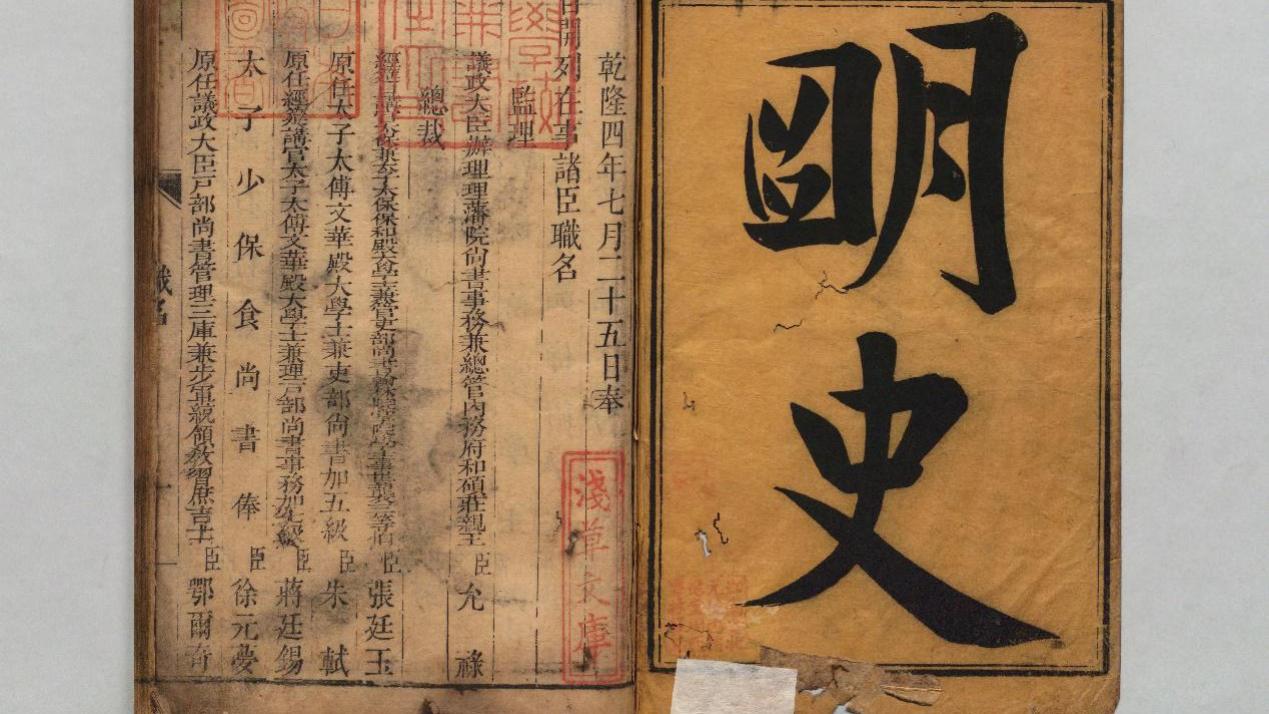 明史
乾隆四年七月二十五日奉
旨開列在事諸臣職名
監理
議政大臣辦理理藩院尚書事務兼總管內務府和碩莊親王臣允祿
總裁
經筵講官太保兼太子太保保和殿大學士兼管吏部尚書翰林院掌院學士事世襲三等伯臣張廷玉
原任太子太傅文華殿大學士兼吏部尚書加五級臣朱軾
原任經筵講官太子太傅文華殿大學士兼理戶部尚書事務加七級臣蔣廷錫
太子少保食尚書俸臣徐元夢
原任議政大臣戶部尚書管理三庫兼步軍統領教習庶吉士臣鄂爾奇
職名
淺草文庫